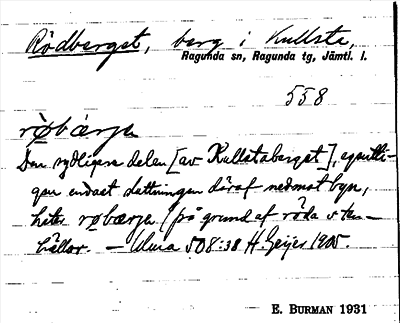 Rödberget, berg i Kullsta,
Ragunda sn, Ragunda tg, Jämtl. l.
558
røbærjen
Den sydligare delen [av Kullstaberget], egentli-
gen endast sluttningen däraf nedmot byn,
heter røbærjen (på grund af röda sten-
hällar. — Ulma 508:38 H. Geijer 1905.
E. BURMAN 1931